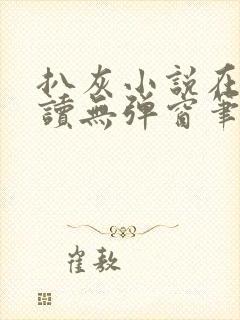 扒灰小说在
讀無弹窗筆
崔敖